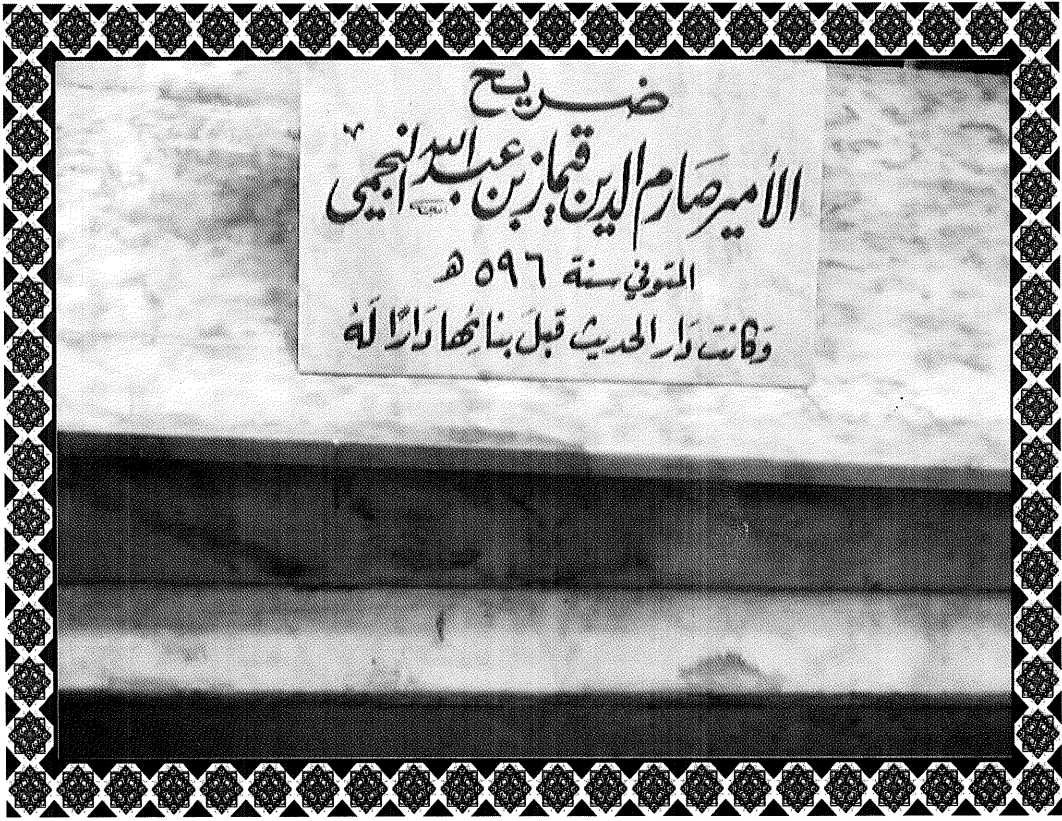 ضريح
الأمير صارم الدين قيماز بن عبد الله النجمي
المتوفي سنة ٥٩٦ هـ
وَكانت دَار الحديث قبلَ بنائِها دَارًا لَهُ